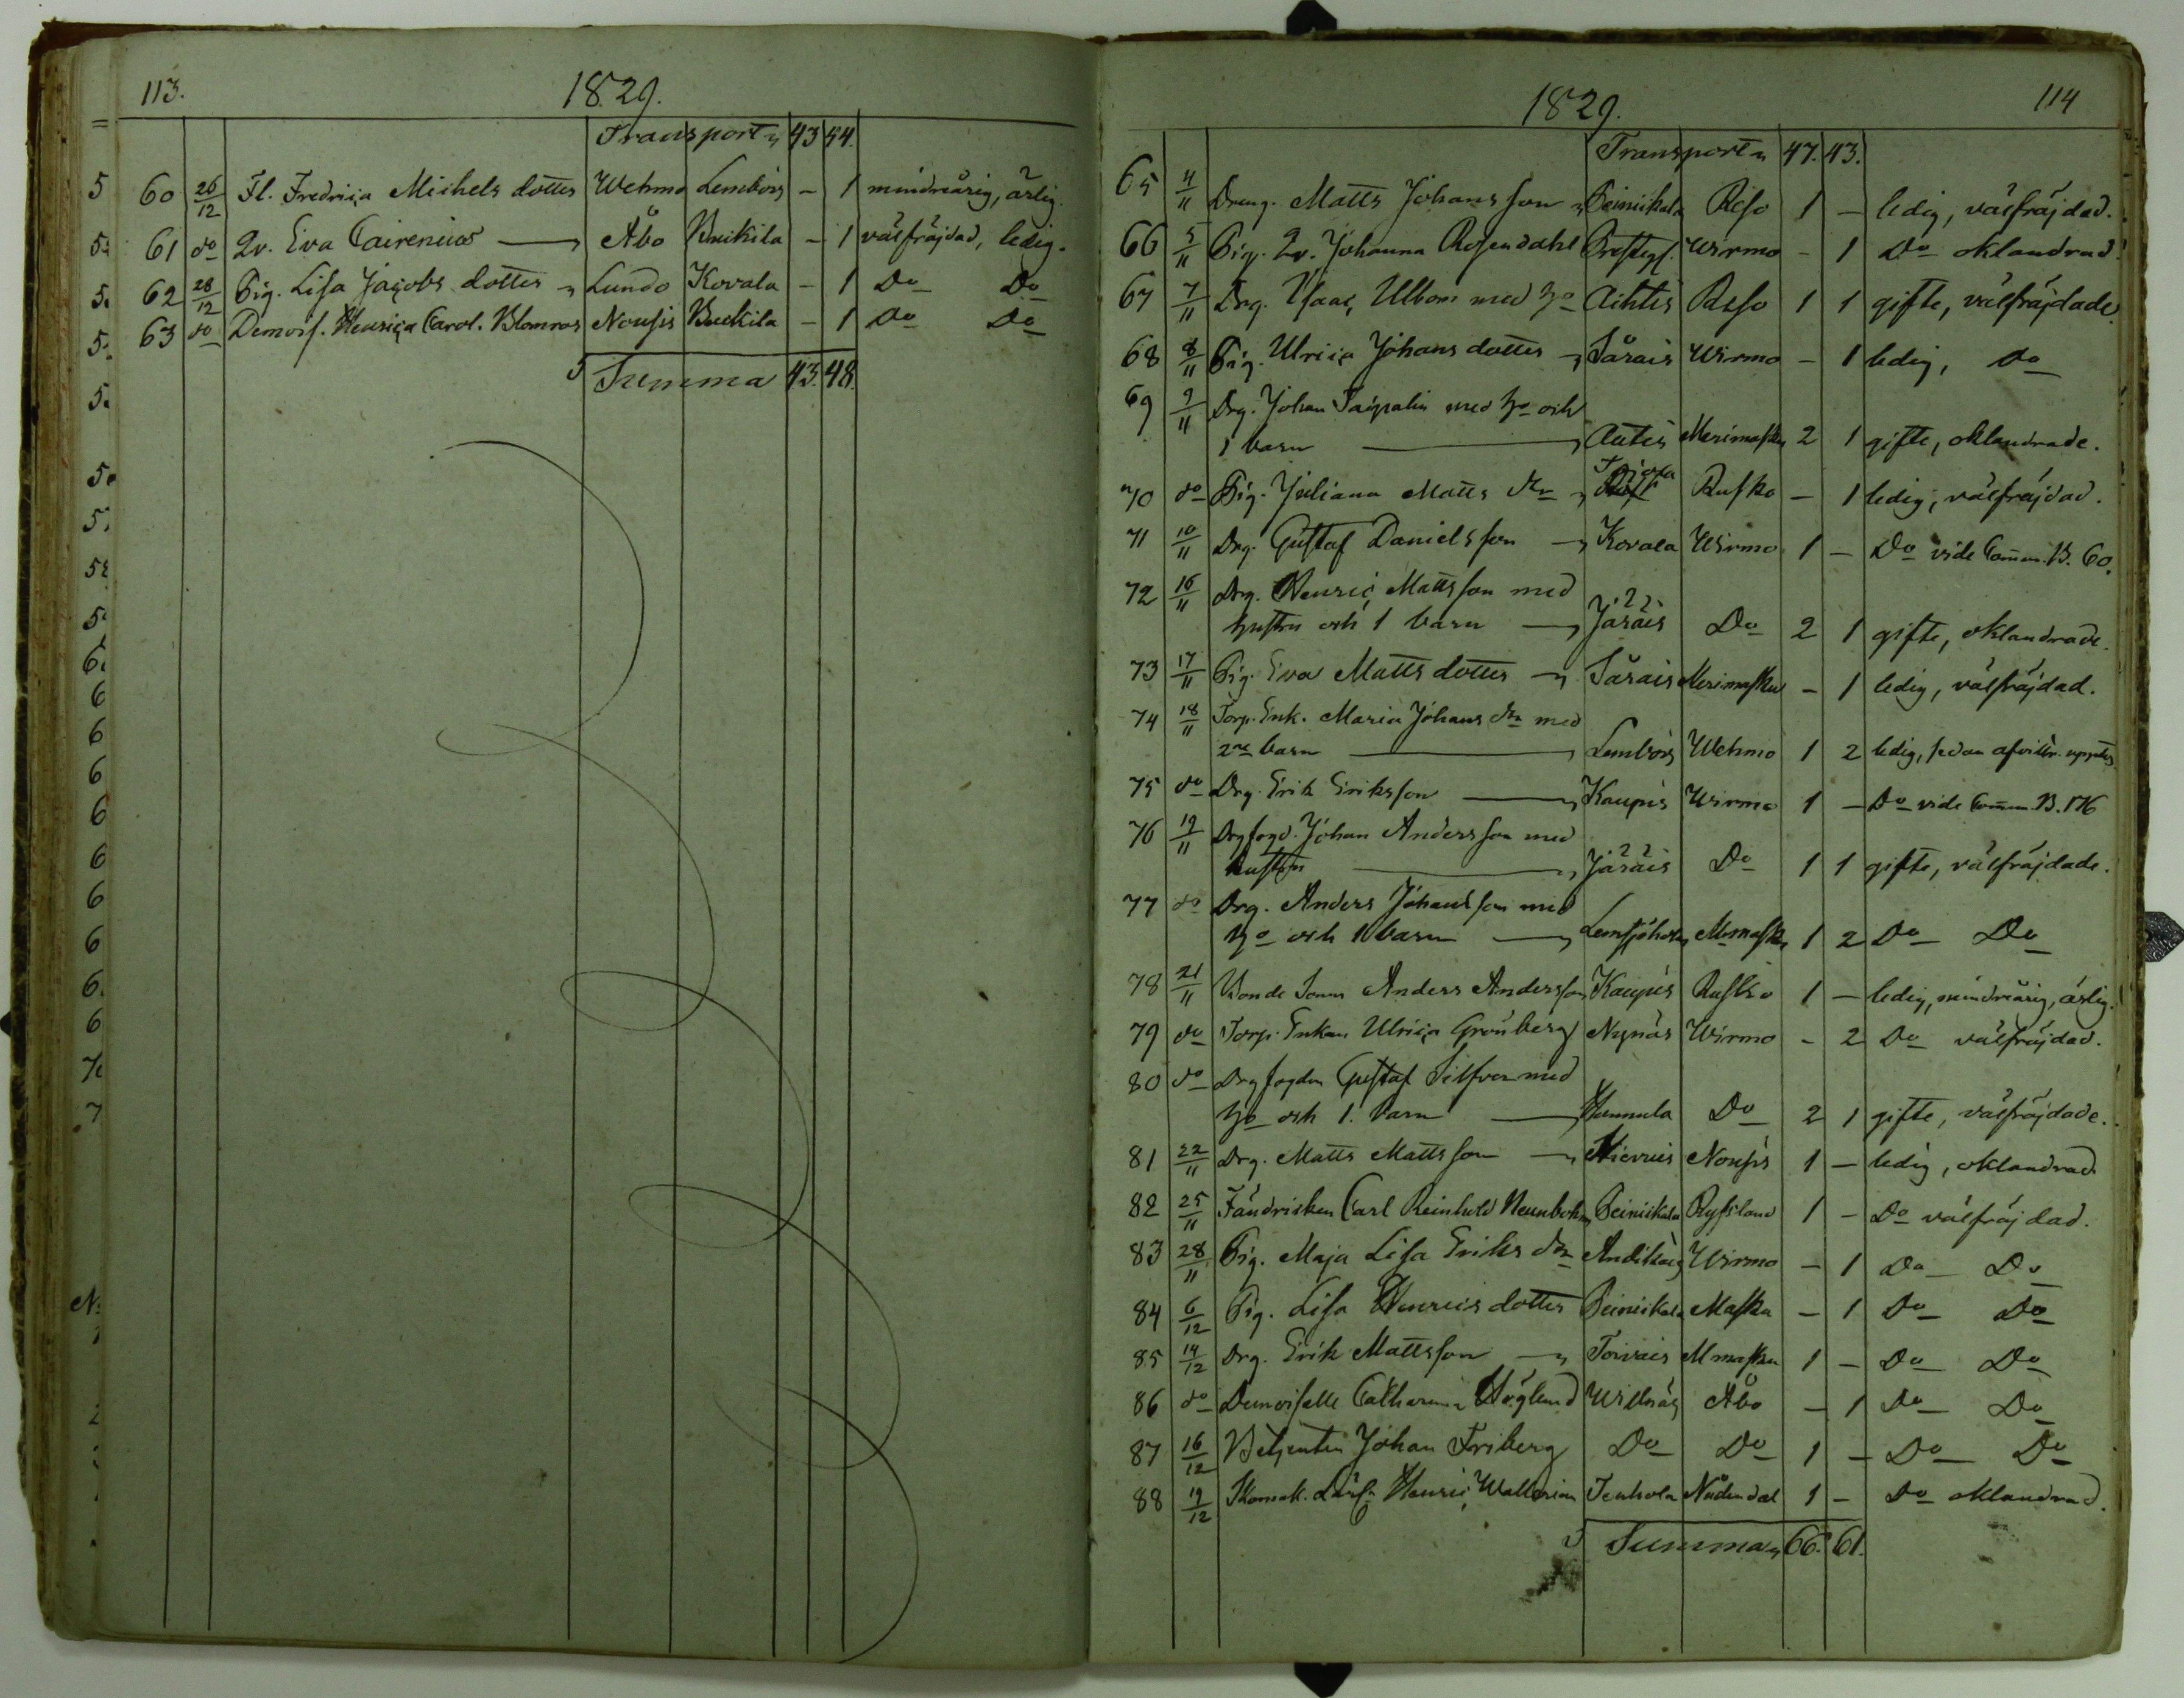 113.
1829.
Transport 43 54.
60 26/12 Fl. Fredrica Michels dotter Wehmo Lembois - 1 mindreårig, ärlig.
61 do Qv. Eva Cairenius Åbo - 1 välfräjdad, ledig.
62 28/12 Pig. Lisa Jacobs dotter Lundo Kovala - 1 Do Do
63 do Demois. Henrica Carol. Blomroos Nousis - 1 Do Do
Summa 43. 48.
1829.
114
Transport 47. 43.
65 4/11 Dreng. Matts Johansson Peiniskala Reso 1 - ledig, välfräjdad.
66 5/11 Pig. Qv. Johanna Rosendahl Presteg. Wirmo - 1 Do oklandrad.
67 7/11 Drg. Isaac Ulbom med ho Aihtis Reso 1 1 gifte, välfräjdade.
68 8/11 Pig. Ulrica Johans dotter Sårais Wirmo - 1 ledig, Do
69 9/11 Drg. Johan Taipalin med ho och
1 barn Autis Merimasku 2 1 gifte, oklandrade.
70 do Pig. Juliana Matts dr Rusko - 1 ledig, välfräjdad.
71 10/11 Drg. Gustaf Danielsson Kovala Wirmo 1 - Do vide Comm. B. 60.
72 16/11 Drg. Henric Mattsson med
hustru och 1 barn Järäis Do 2 1 gifte, oklandrade.
73 17/11 Pig. Eva Matts dotter Sårais Merimasku - 1 ledig, välfräjdad.
74 18/11 Torp. Enk. Maria Johans dr med
2ne barn Lembois Wehmo 1 2 ledig, sedan afvittr.
75 do Drg. Erik Eriksson Kaupis Wirmo 1 - Do vide Comm. B. 176
76 19/11 Drgfogd. Johan Andersson med
hustru Järäis Do 1 1 gifte, välfräjdade.
77 do Drg. Anders Johansson med
ho och 1 barn Lemsjöholm Mmasku 1 2 Do Do
78 21/11 Bonde Sonen Anders Andersson Kaupis Rusko 1 - ledig, mindreårig, ärlig.
79 do Torp. Enkan Ulrica Grönberg Nynäs Wirmo - 2 Do välfräjdad.
80 do Drgfogden Gustaf Silfver med
ho och 1. barn Hannula Do 2 1 gifte, välfräjdade.
81 22/11 Drg. Matts Mattsson Hiervis Nousis 1 - ledig, oklandrad
82 25/11 Fändricken Carl Reinhold Peiniskala Ryssland 1 - Do välfräjdad.
83 28/11 Pig. Maja Lisa Eriks dr Andikais Wirmo - 1 Do Do
84 6/12 Pig. Lisa Henrics dotter Peiniskala Masku - 1 Do Do
85 14/12 Drg. Erik Mattsson Toivais Mmasku 1 - Do Do
86 do Demoiselle Catharina Höglund Willnäs Åbo - 1 Do Do
87 16/12 Betjenten Johan Friberg Do Do 1 - Do Do
88 19/12 Skomak. Lärl. Henric Wallenius Tenhola Nådendal 1 - Do oklandrad.
Summa 66. 61.